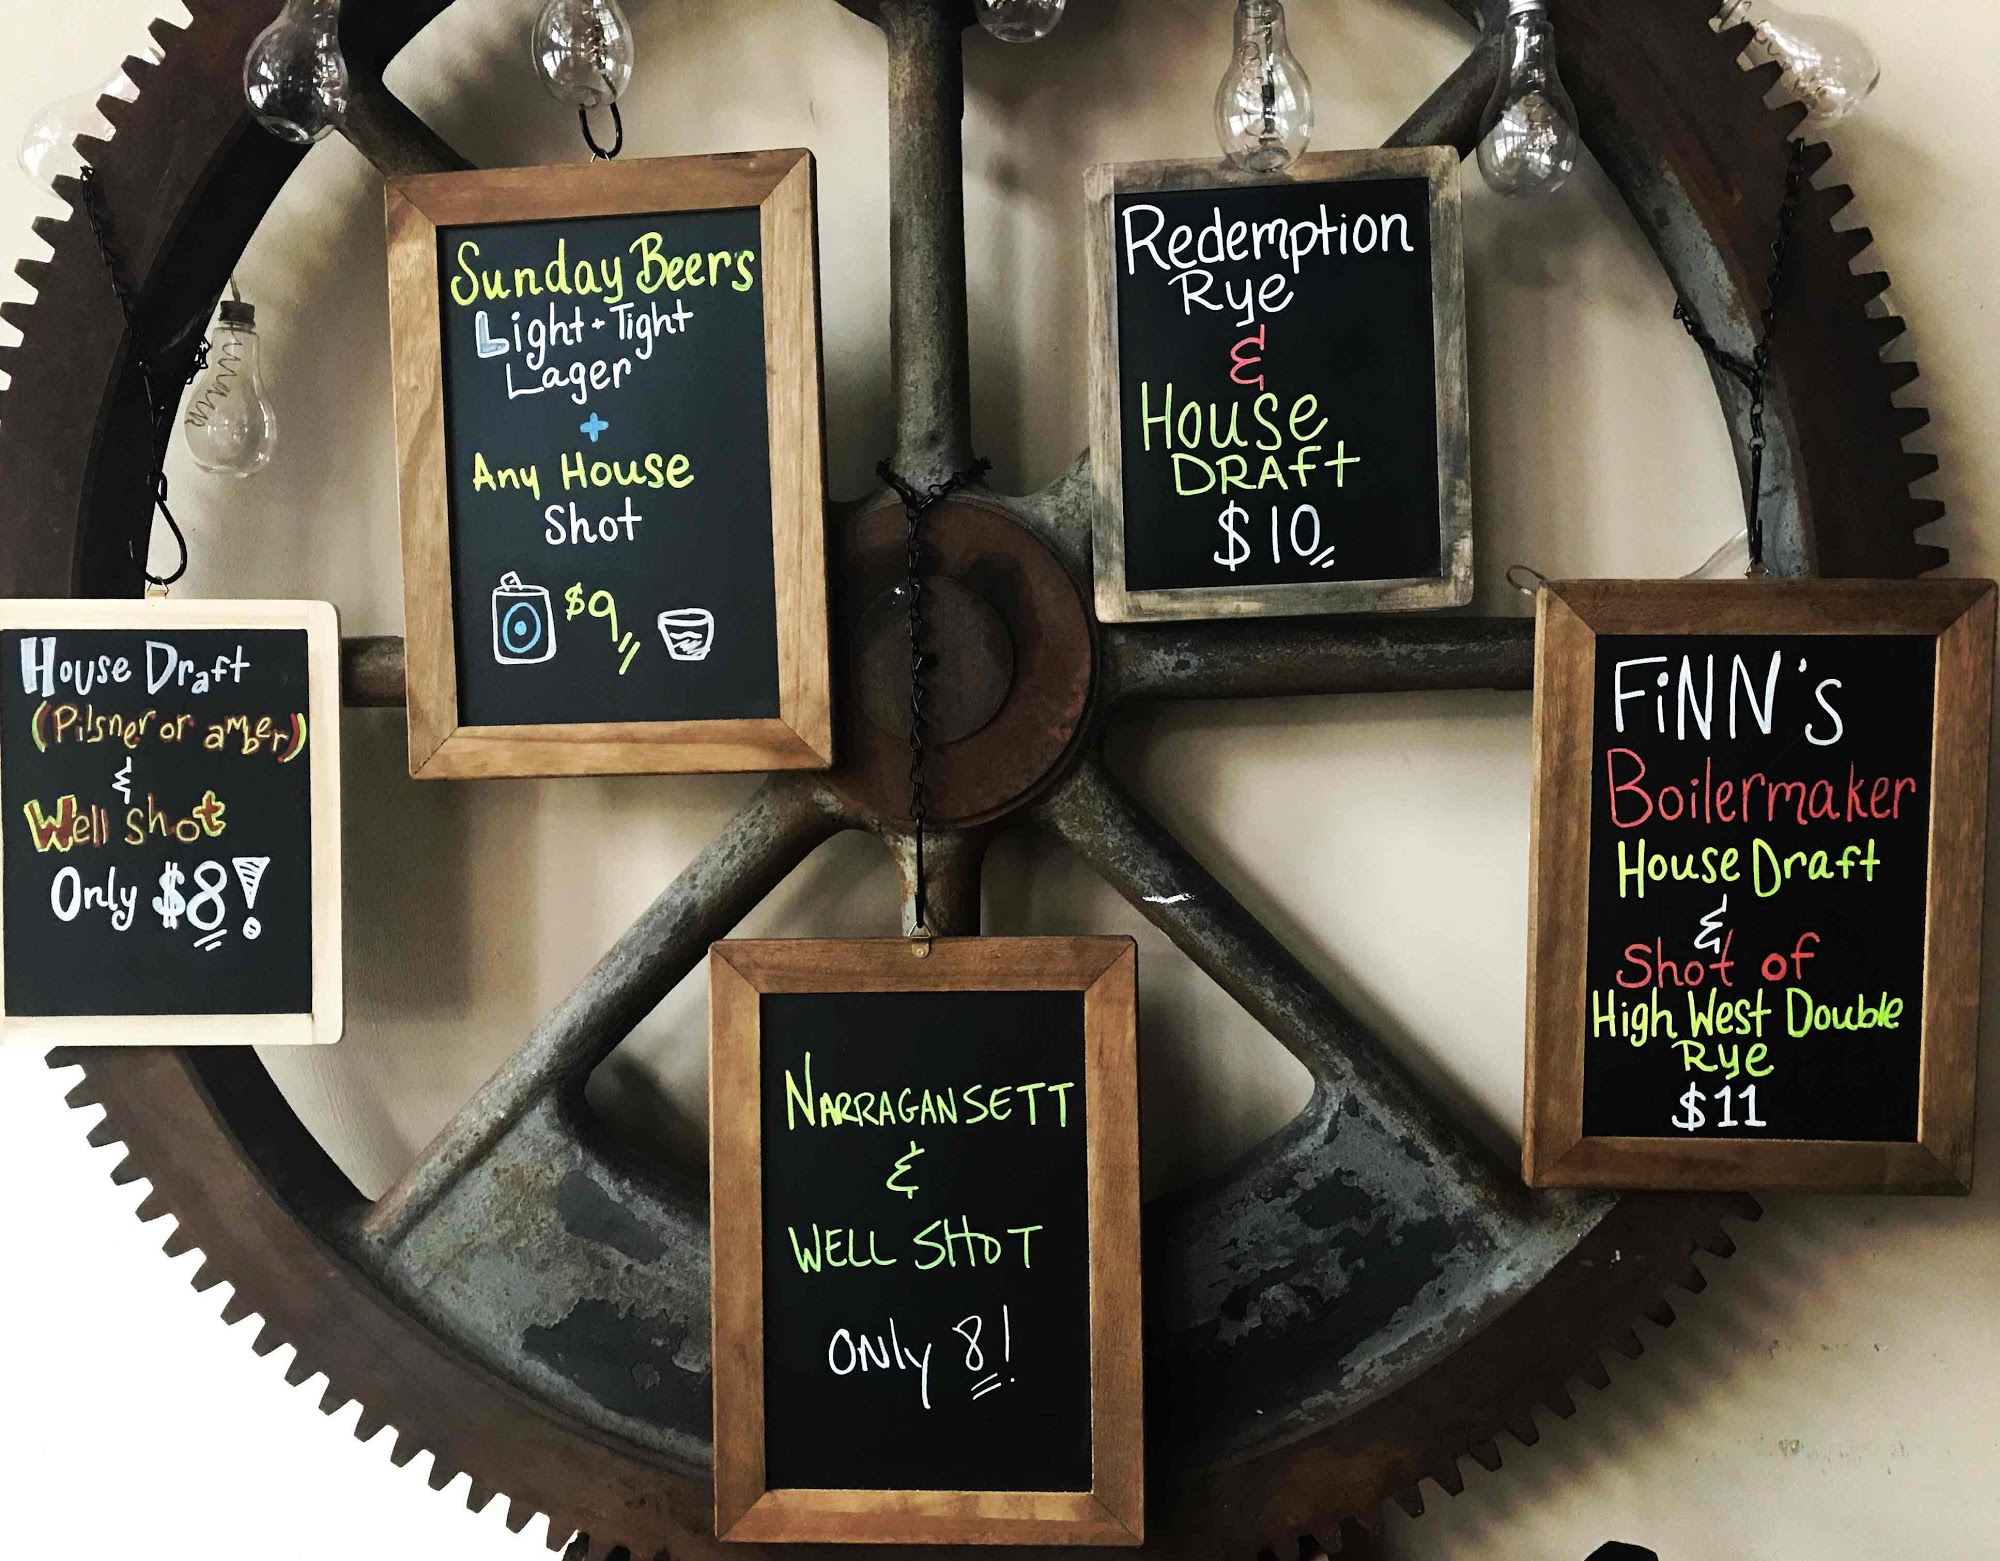 Sunday Beer's
Light + Tight
Lager
+
Any House
Shot
$9
Redemption
Rye
&
House
Draft
$10
House Draft
(Pilsner or amber)
&
Well shot
Only $8!
FiNN's
Boilermaker
House Draft
&
Shot of
High West Double
Rye
$11
NARRAGANSETT
&
WELL SHOT
ONly 8!